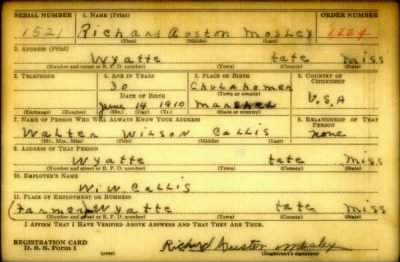 SERIAL NUMBER 1. NAME (Print) ORDER NUMBER
1521 Richard Auston Mosley 1224
(First) (Middle) (Last)
2. ADDRESS (Print)
Wyatte tate Miss
(Number and street or R. F. D. number) (Town) (County) (State)
3. TELEPHONE 4. AGE IN YEARS 5. PLACE OF BIRTH 6. COUNTRY OF CITIZENSHIP
30 Chulahomer
DATE OF BIRTH U.S.A
June 14 1910 Marshel
(Exchange) (Number) (Mo.) (Day) (Yr.) (State or country)
7. NAME OF PERSON WHO WILL ALWAYS KNOW YOUR ADDRESS 8. RELATIONSHIP OF THAT PERSON
Walter Wilson Callis none
(Mr., Mrs., Miss) (First) (Middle) (Last)
9. ADDRESS OF THAT PERSON
Wyatte tate Miss
(Number and street or R. F. D. number) (Town) (County) (State)
10. EMPLOYER'S NAME
W. W. Callis
11. PLACE OF EMPLOYMENT OR BUSINESS
(Farmer) Wyatte tate Miss
(Number and street or R. F. D. number) (Town) (County) (State)
I AFFIRM THAT I HAVE VERIFIED ABOVE ANSWERS AND THAT THEY ARE TRUE.
REGISTRATION CARD
D. S. S. Form 1 Richard Auston Mosley
(Registrant's signature)